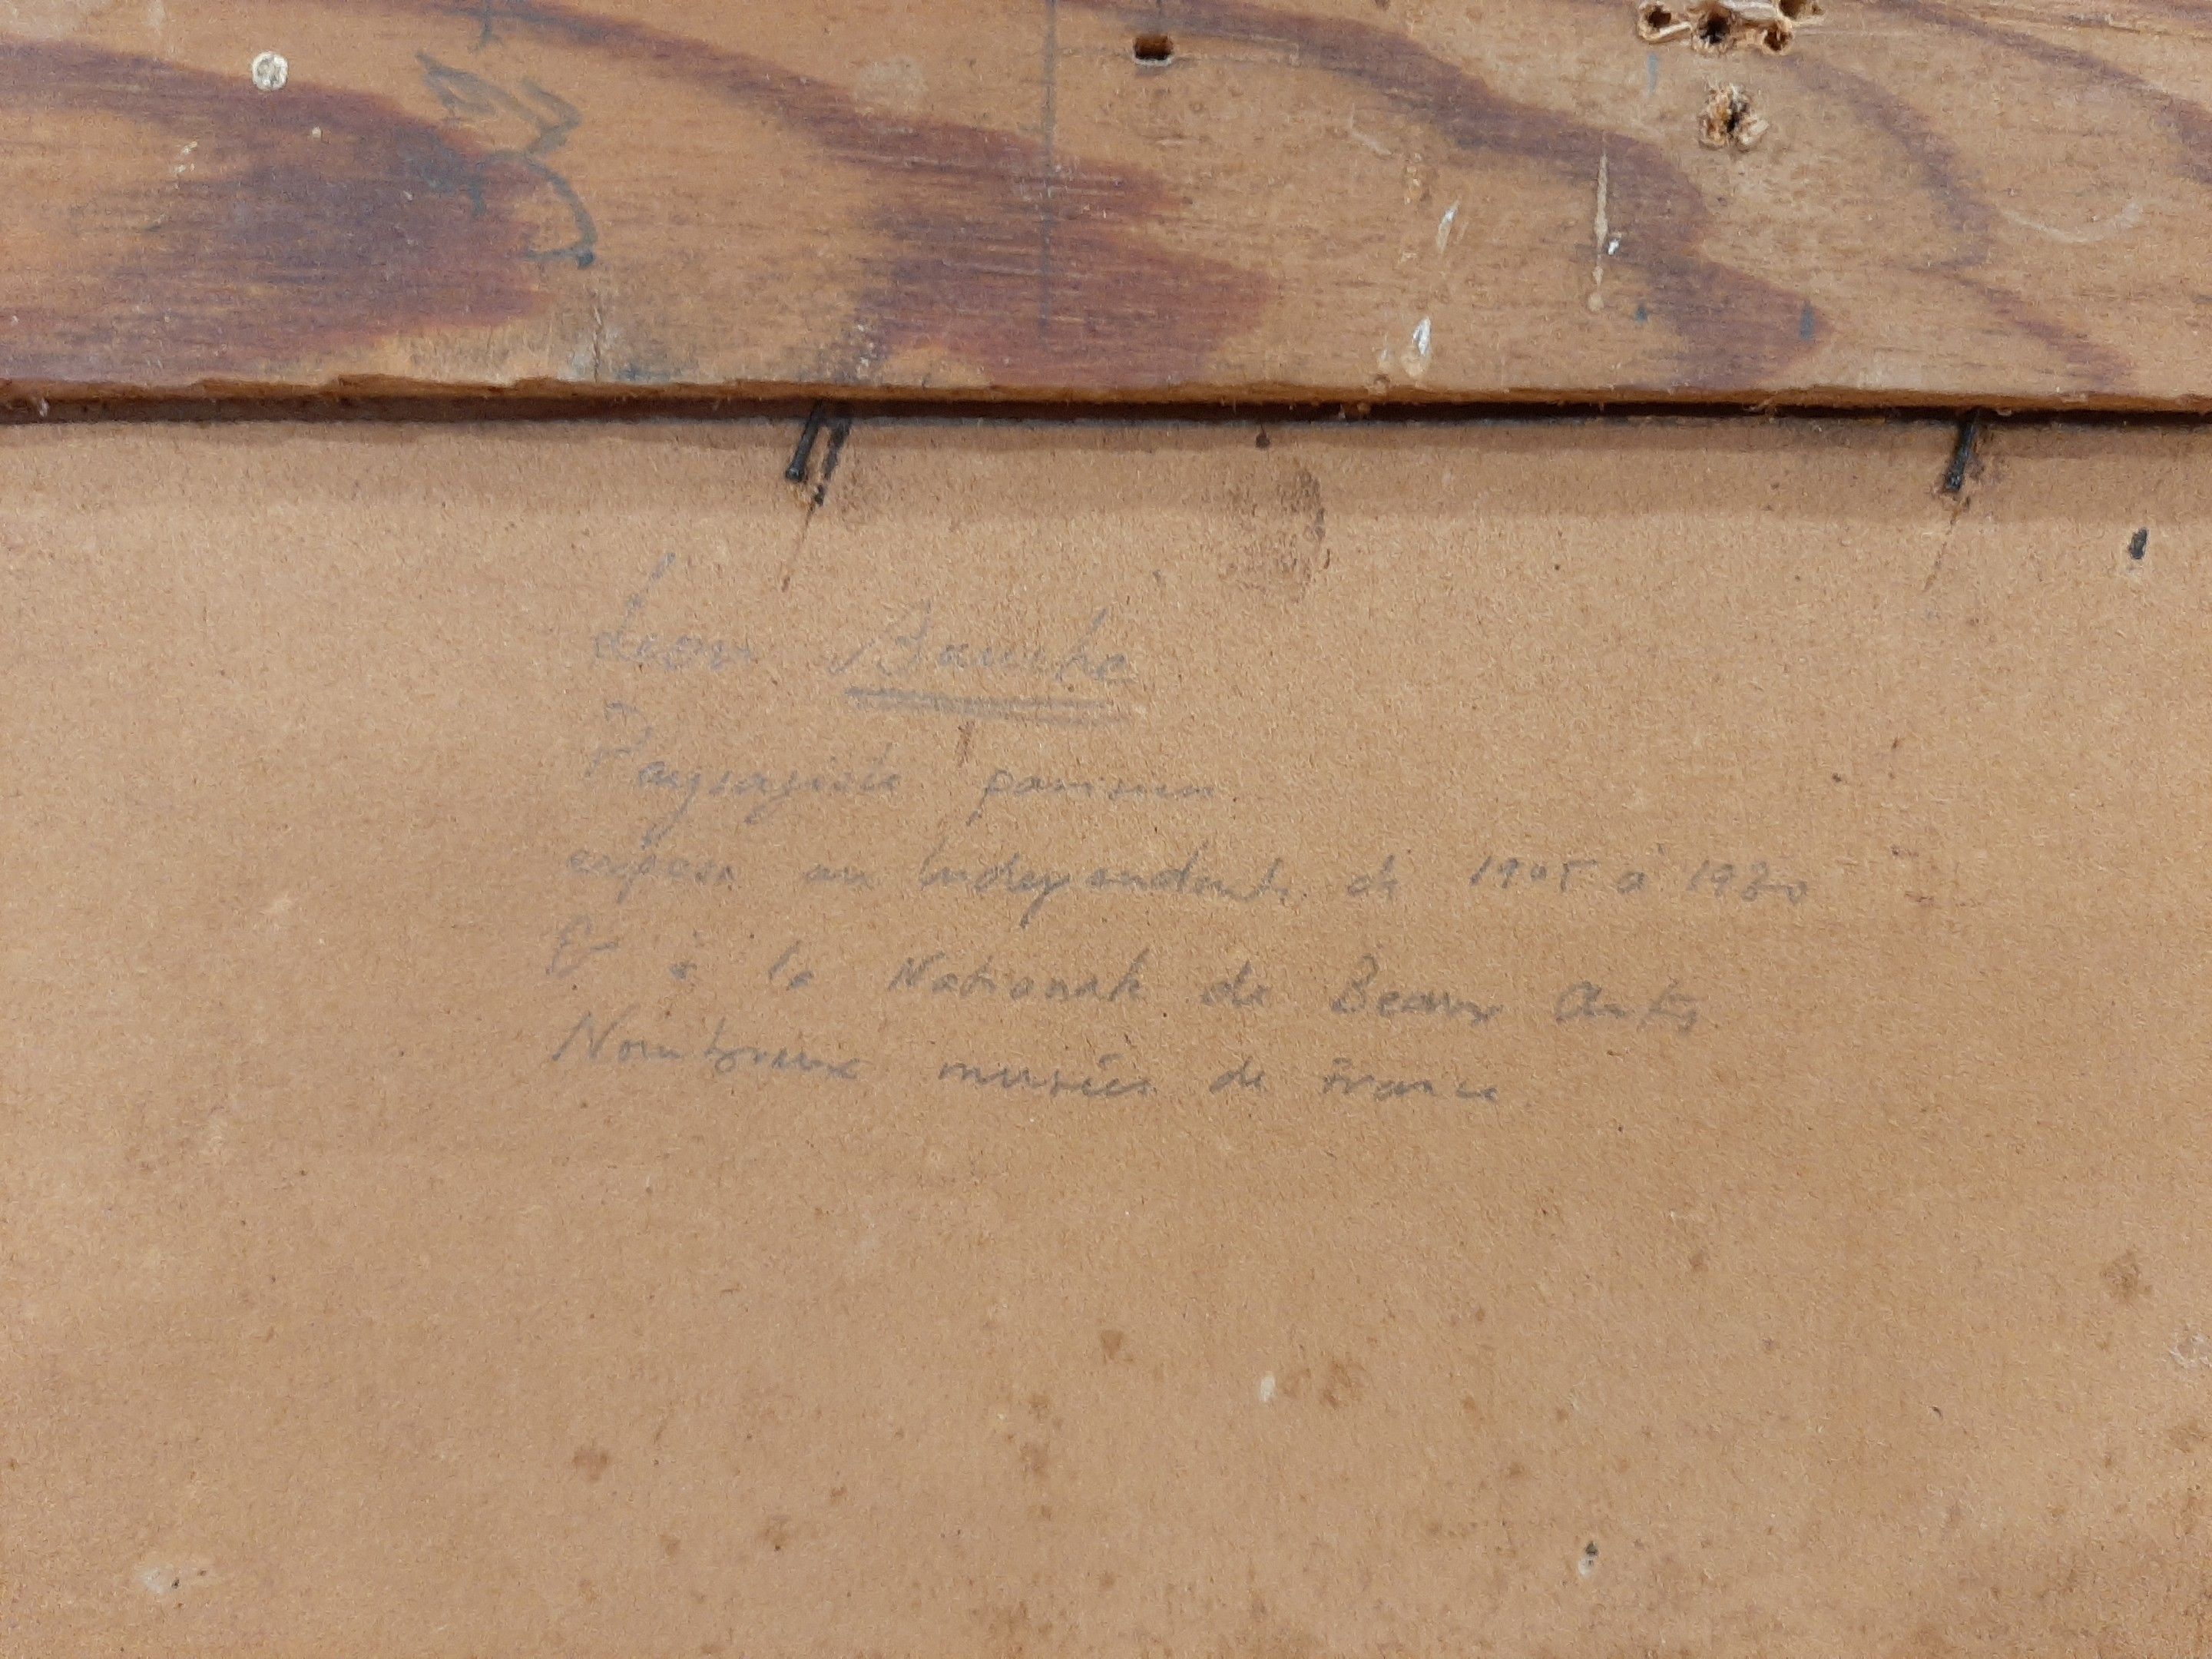 Léon Bauche
Paysagiste parisien
expose au Indépendants de 1905 à 1930
& à la Nationale de Beaux Arts
Nombreux musées de France.